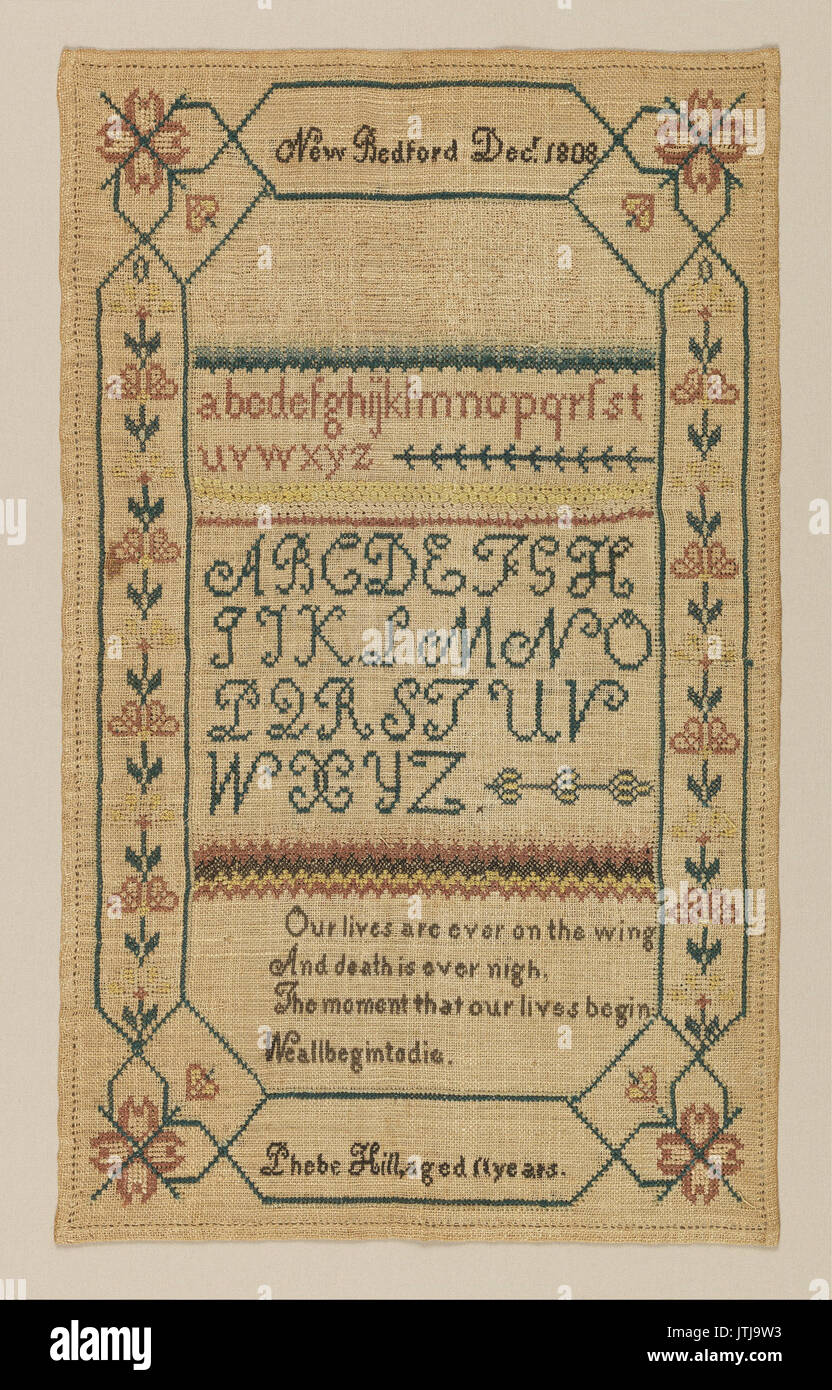 New Bedford Decr. 1808
abcdefghijklmnopqrſst
uvwxyz
ABCDEFGH
IJKLMNO
PQRSTUV
WXYZ.
Our lives are ever on the wing
And death is ever nigh,
The moment that our lives begin
We all begin to die.
Phebe Hill, aged 11 years.
alamy
alamy
Image ID: JTJ9W3
www.alamy.com